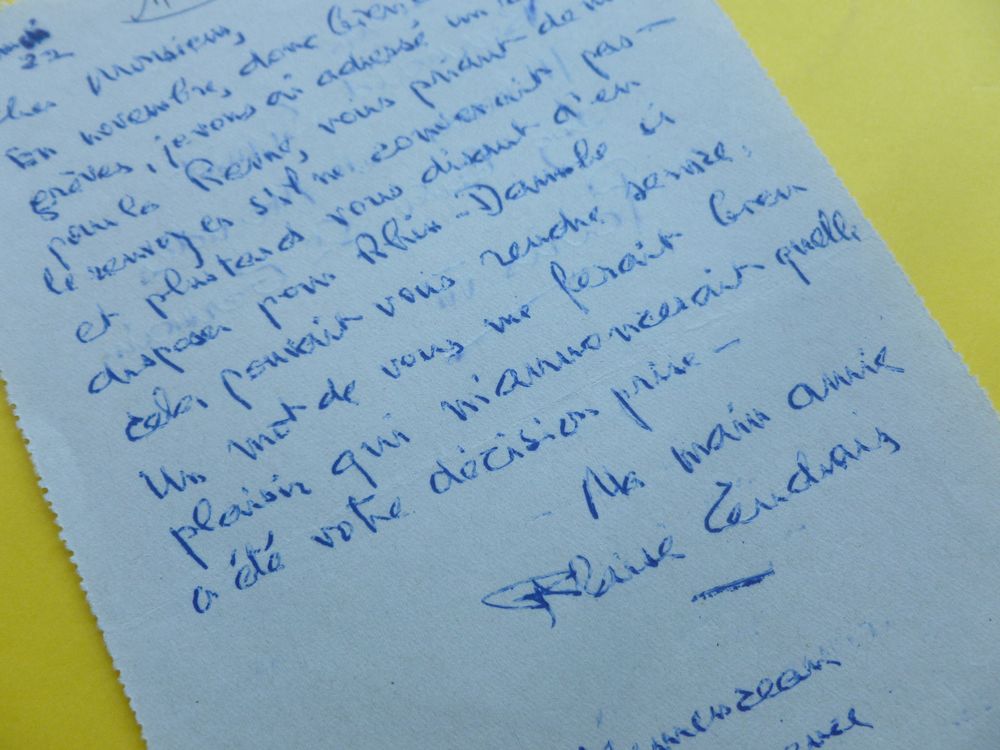 22
Cher Monsieur,
En novembre, donc bien
grèves, je vous ai adressé un
pour la Revue, vous priant de
le renvoyer s'il ne convenait pas –
et plus tard vous disant d'en
disposer pour Rhin-Danube si
cela pouvait vous rendre service.
Un mot de vous me ferait bien
plaisir qui m'annoncerait quelle
a été votre décision prise –
Ma main amie